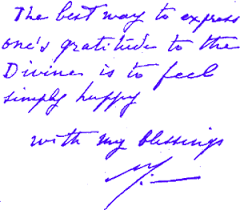 The best way to express
one's gratitude to the
Divine is to feel
simply happy
with my blessings